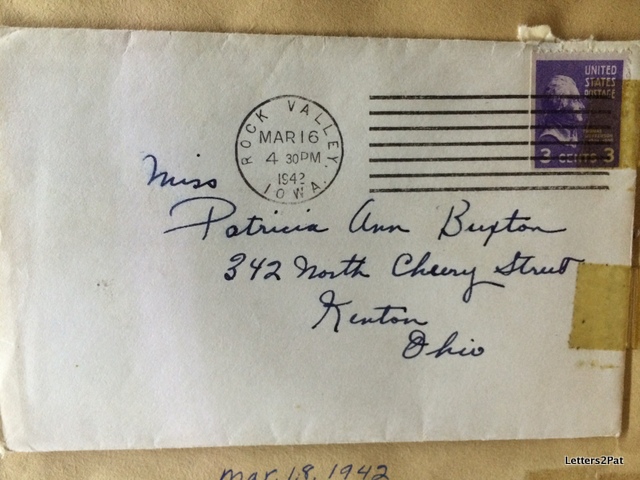 ROCK VALLEY.
MAR 16
4 30PM
1942
IOWA.
UNITED
STATES
POSTAGE
3 CENTS 3
Miss
Patricia Ann Buxton
342 North Cherry Street
Kenton
Ohio
Mar. 18. 1942
Letters2Pat